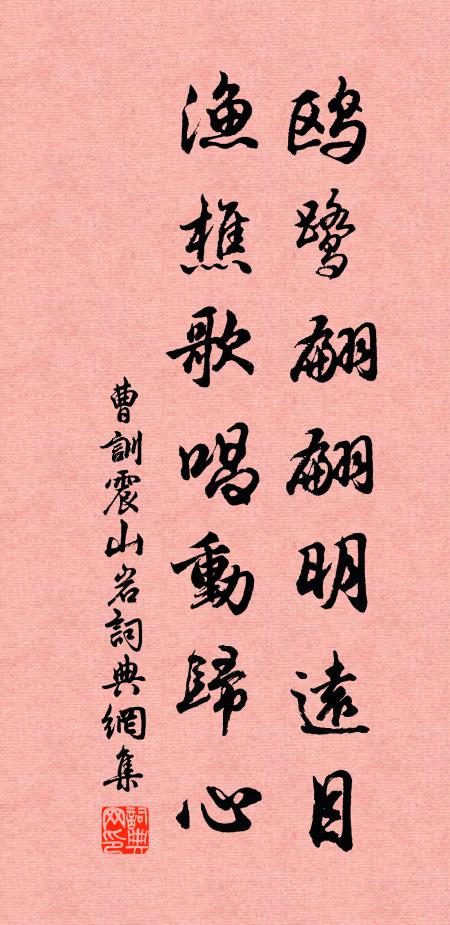 鸥鹭翩翩明遠目
漁樵歌唱動歸心
曹訓震山岩詞典網集
詞典网印